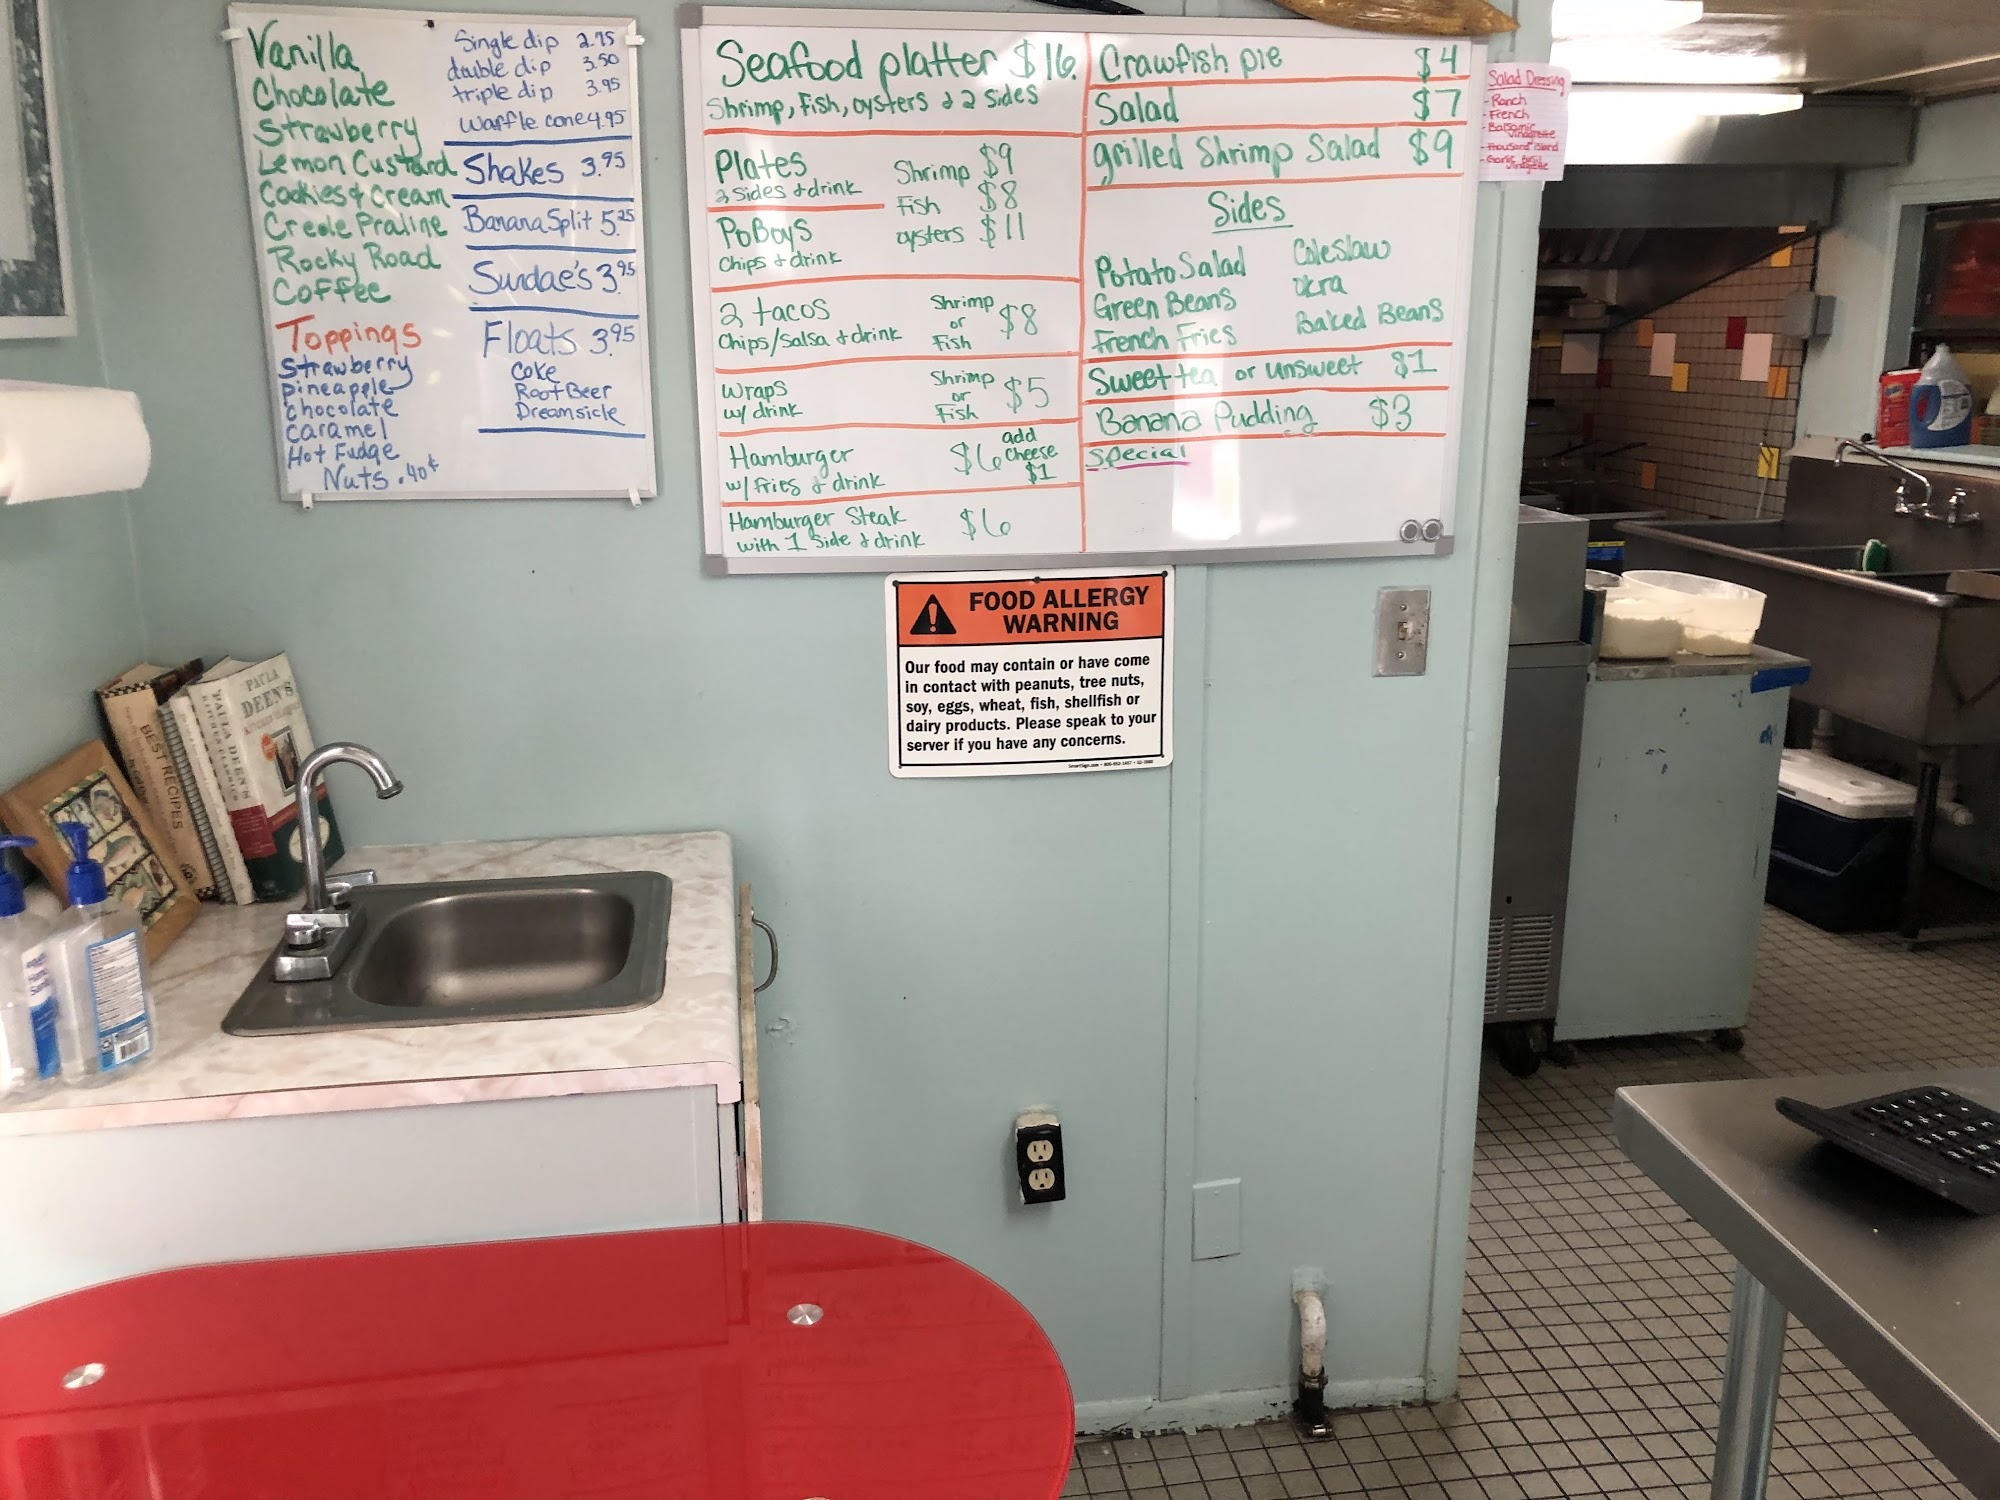 Vanilla
Chocolate
Strawberry
Lemon Custard
Cookies & Cream
Creole Praline
Rocky Road
Coffee
Toppings
Strawberry
pineapple
chocolate
caramel
Hot Fudge
Nuts .40¢
Single dip 2.75
double dip 3.50
triple dip 3.95
Waffle cone 4.95
Shakes 3.95
Banana Split 5.25
Sundae's 3.95
Floats 3.95
Coke
Root Beer
Dreamsicle
Seafood platter $16.
Shrimp, Fish, oysters & 2 sides
Plates
2 sides & drink
PoBoys
Chips & drink
Shrimp $9
Fish $8
oysters $11
2 tacos
Chips/Salsa & drink
Shrimp
or
Fish
$8
wraps
w/ drink
Shrimp
or
Fish
$5
Hamburger
w/ fries & drink
$6
add
cheese
$1
Hamburger Steak
with 1 side & drink
$6
Crawfish pie $4
Salad $7
grilled Shrimp Salad $9
Sides
Potato Salad
Green Beans
French Fries
Coleslaw
okra
Baked Beans
Sweet tea or unsweet $1
Banana Pudding $3
Special
Salad Dressing
- Ranch
- French
- Balsamic
Vinagrette
- thousand island
FOOD ALLERGY
WARNING
Our food may contain or have come
in contact with peanuts, tree nuts,
soy, eggs, wheat, fish, shellfish or
dairy products. Please speak to your
server if you have any concerns.
BEST RECIPES
PAULA DEEN'S
PAULA
DEEN'S